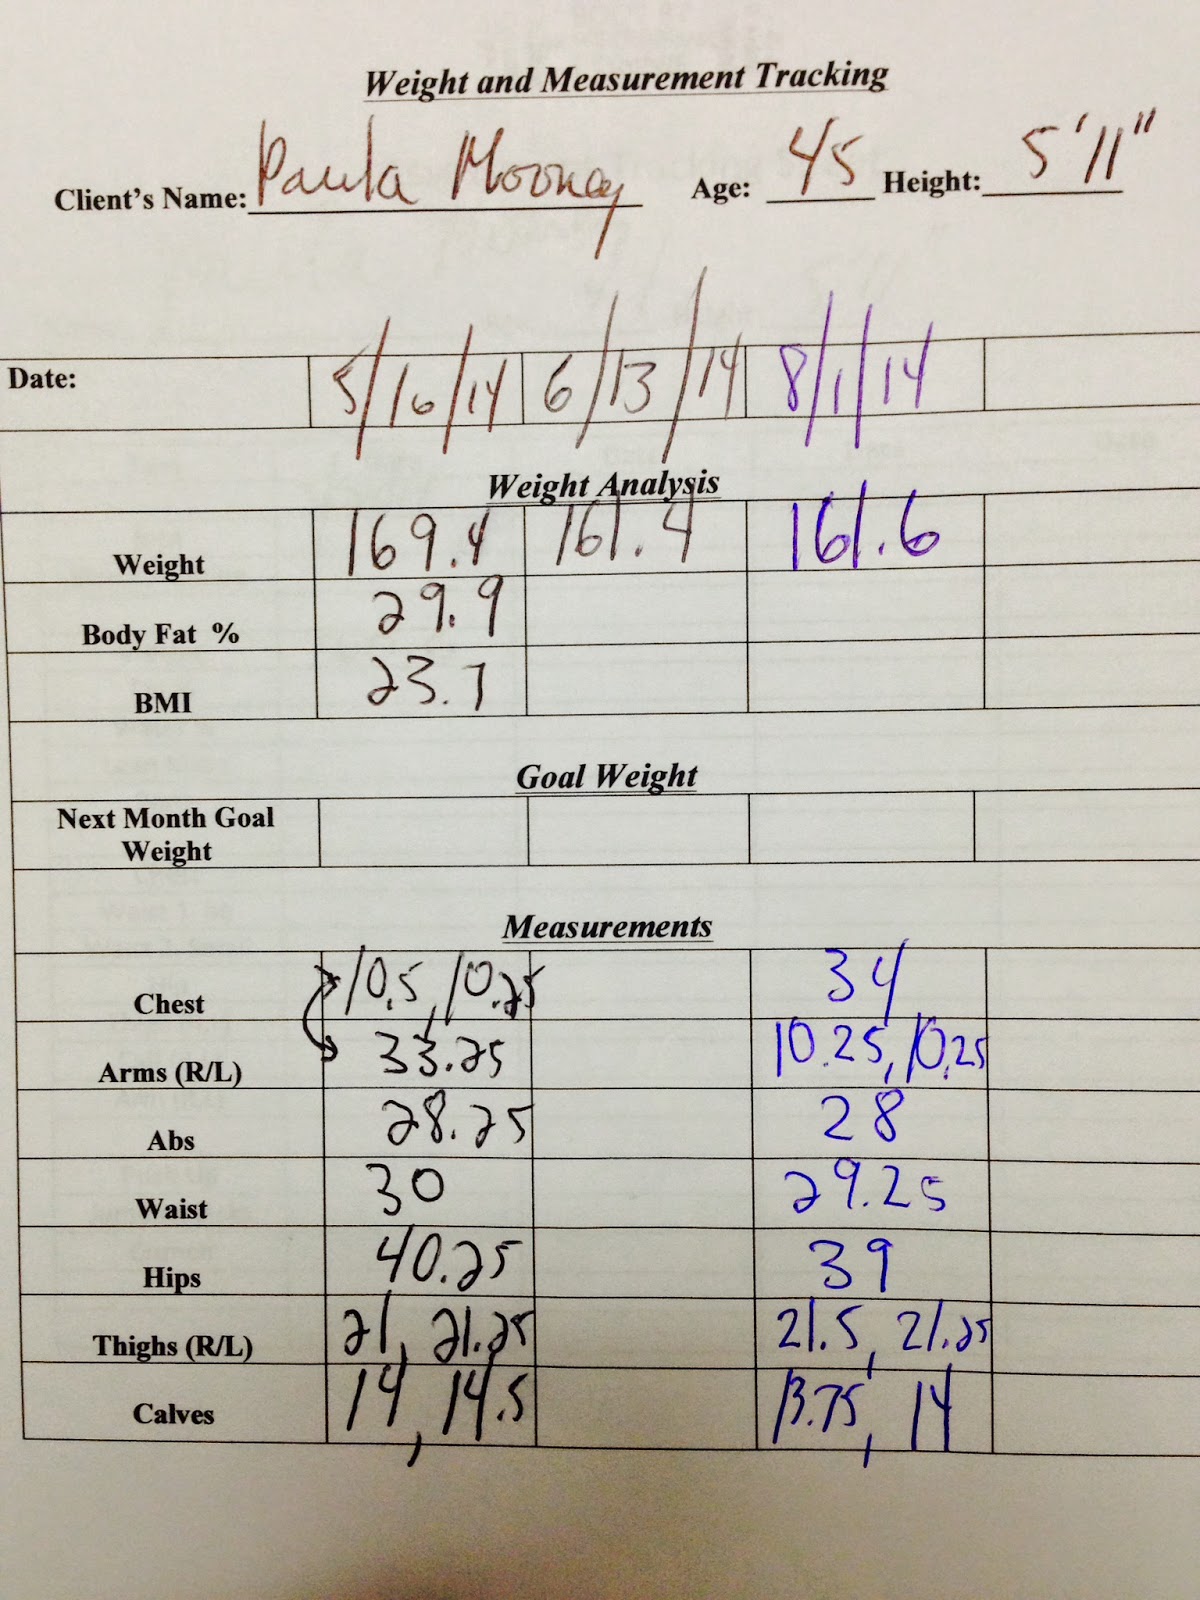 Weight and Measurement Tracking
Client's Name: Paula Mooney Age: 45 Height: 5'11"
Date: 5/16/14 6/13/14 8/1/14
Weight Analysis
Weight 169.4 161.4 161.6
Body Fat % 29.9
BMI 23.7
Goal Weight
Next Month Goal
Weight
Measurements
Chest 10.5, 10.25 34
Arms (R/L) 33.25 10.25, 10.25
Abs 28.25 28
Waist 30 29.25
Hips 40.25 39
Thighs (R/L) 21, 21.25 21.5, 21.25
Calves 14, 14.5 13.75, 14